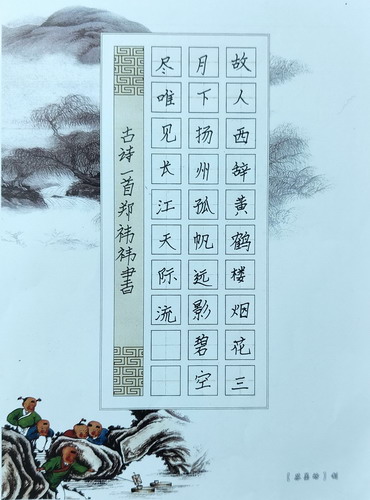 故人西辞黄鹤楼烟花三
月下扬州孤帆远影碧空
尽唯见长江天际流
古诗一首郑祎祎書